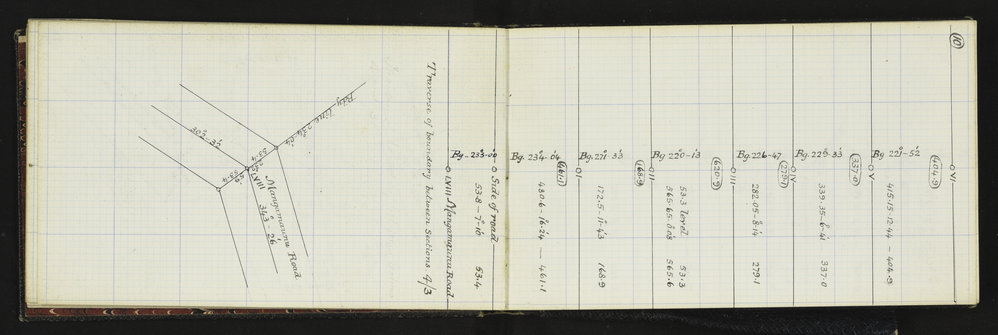 10
Traverse of boundary between Sections 4/3
Bdy line 234°·04'
302°-33'
53·4
53·4
LVIII
Mangamaunu Road
343°-26'
LVIII Mangamaunu Road
Bg. 233·00
53·8 - 7°·10'
53·4
Side of road
Bg. 234·04
480·6 - 16·24 — 461·1
461·1
I
Bg. 271·33
172·5 - 11·43
168·9
168·9
II
Bg 220-13
53·3 level
53·3
565·6
620·9
III
Bg. 226-47
282·05-8·14
279·1
279·1
IV
Bg. 229-33
339·35-6·41
337·0
337·0
V
Bg 221-52
415·15-12·44 - 404·9
404·9
VI